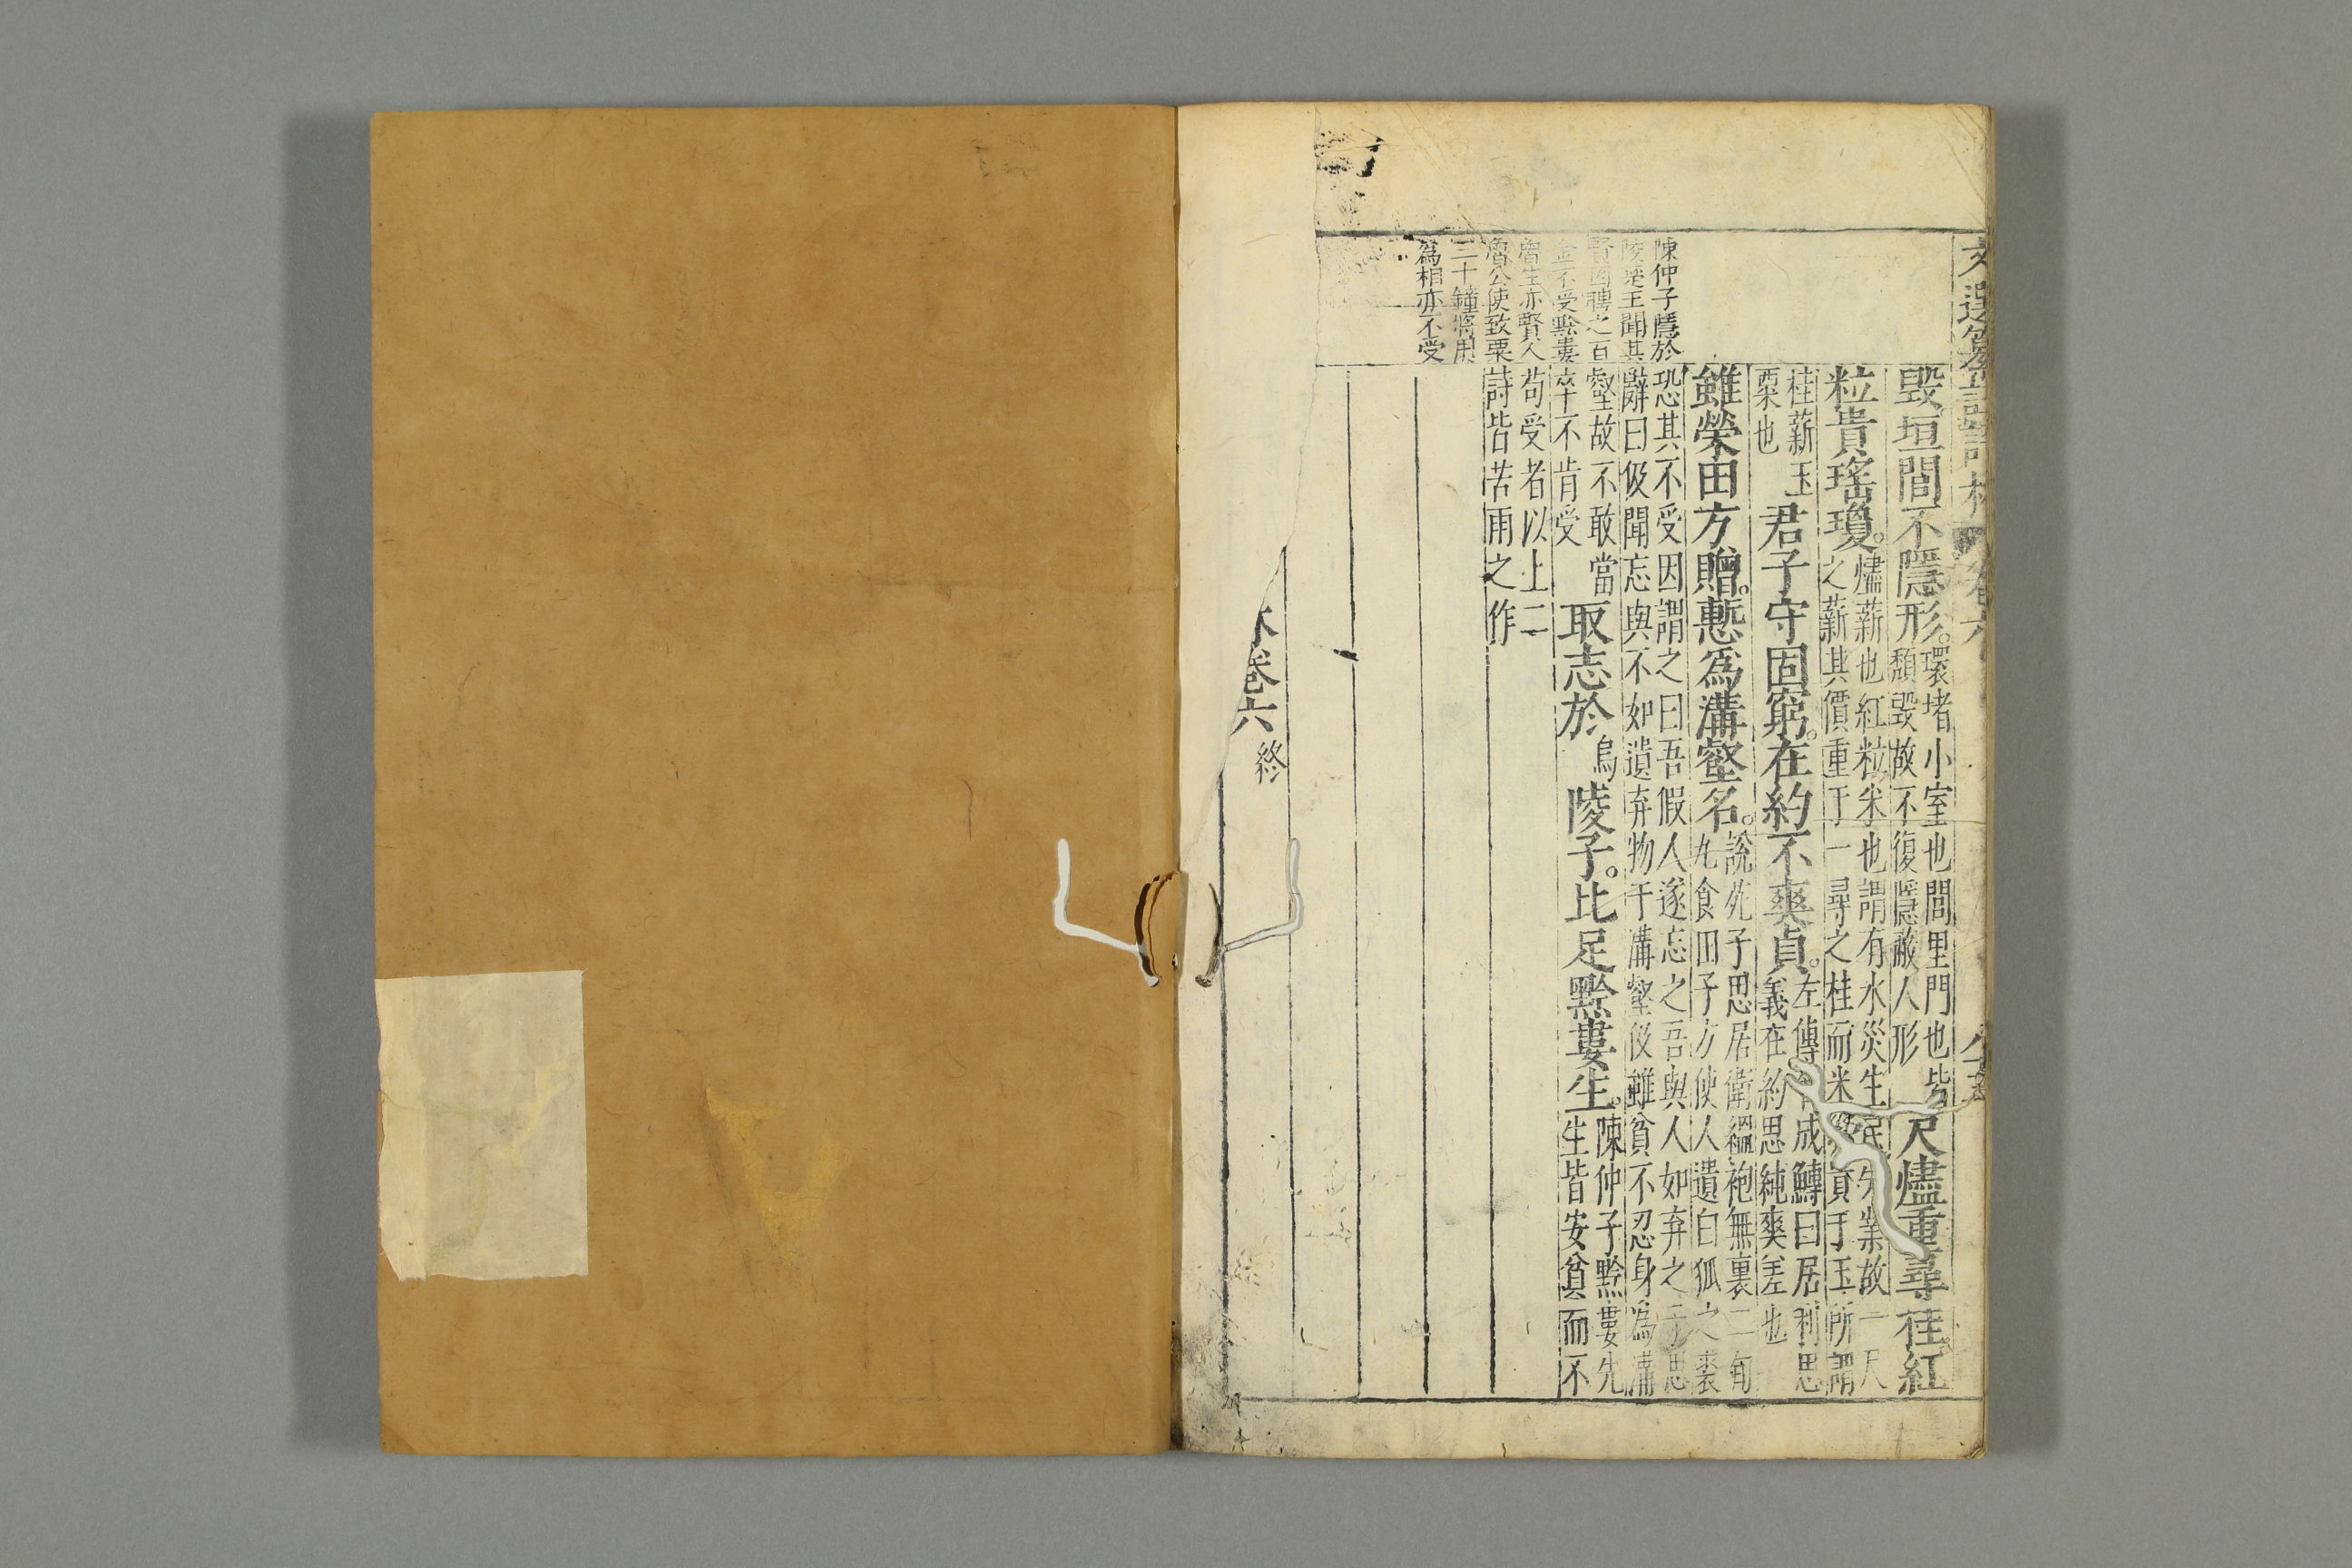 文選纂註評林 卷六
陳仲子隱於
陵楚王聞其
賢因聘之百
金不受黔婁
魯生亦賢人
魯公使致粟
三十鐘將用
為相亦不受
毀垣閭不隱形。環堵小室也閭里門也皆
頹毀故不復隱蔽人形
尺燼重尋桂。紅
粒貴瑤瓊。燼薪也紅粒米也謂有水災生民失業故一尺
之薪其價重于一尋之桂而米貴于玉所謂
桂薪玉
粟也
君子守固窮。在約不爽貞。左傳成鱄曰居利思
義在約思純爽差也
雖榮田方贈。慙爲溝壑名。說苑子思居衛縕袍無裏二旬
九食田子方使人遺白狐之裘
恐其不受因謂之曰吾假人遂忘之吾與人如弃之子思
辭曰伋聞忘與不如遺弃物于溝壑伋雖貧不忍身為溝
壑故不敢當
卒不肯受
取志於烏陵子。比足黔婁生。陳仲子黔婁先
生皆安貧而不
苟受者以上二
詩皆苦雨之作
卷六終